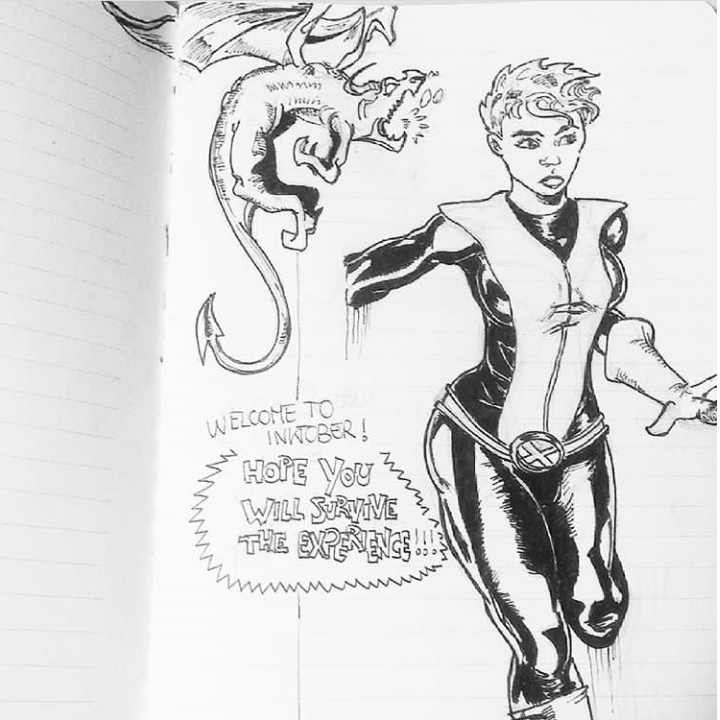 WELCOME TO
INKTOBER!
HOPE YOU
WILL SURVIVE
THE EXPERIENCE!!!